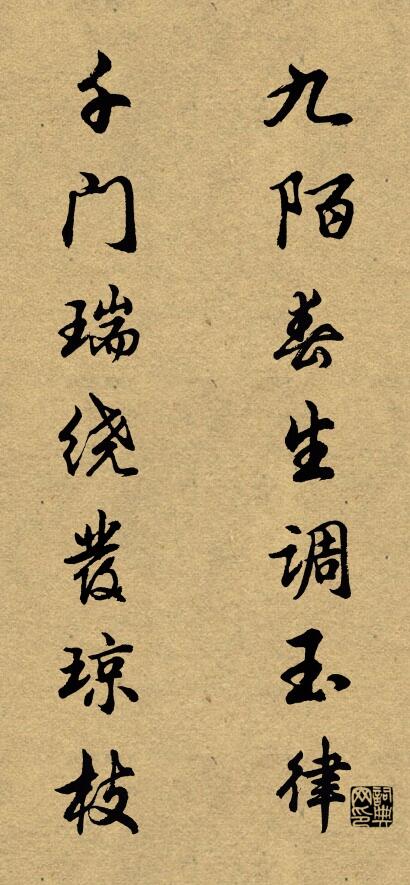 九陌春生调玉律
千门瑞绕發琼枝
詞典网印